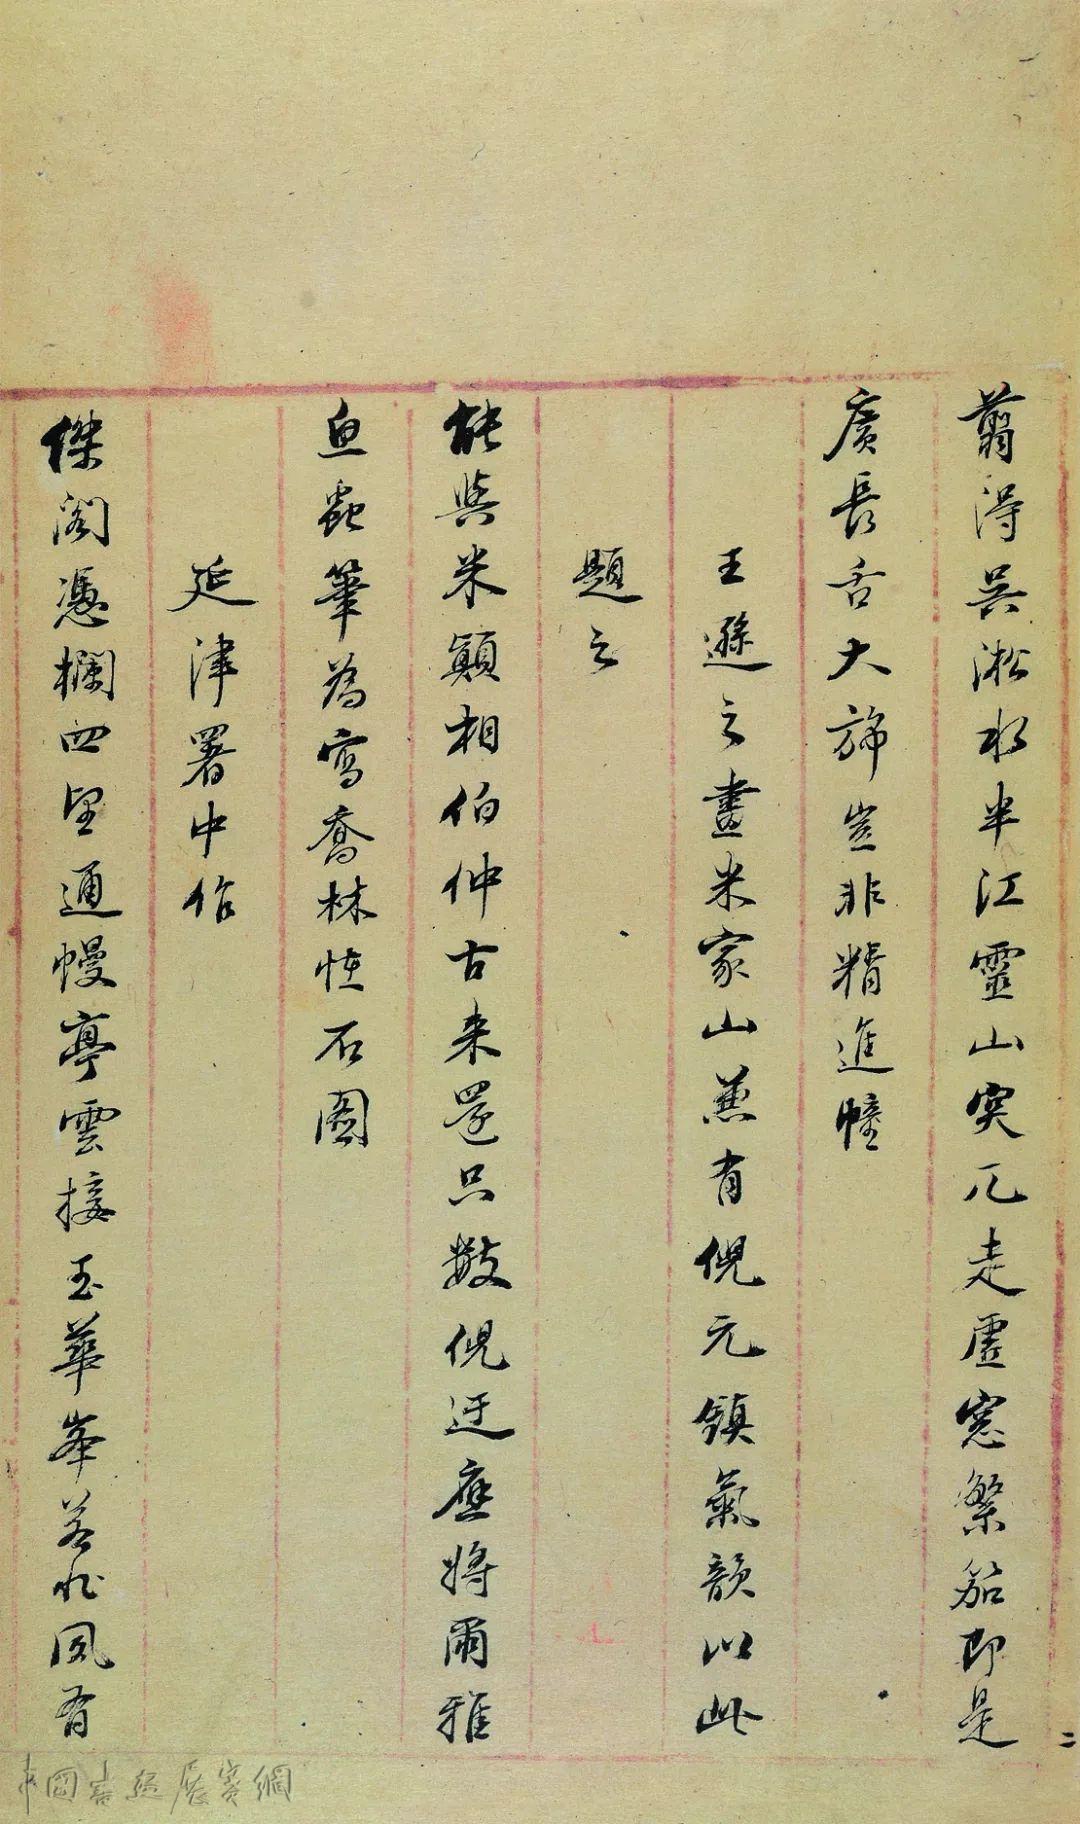 翦得吳淞水半江靈山突兀走虛窓繁笳即是
廣長舌大旆豈非精進幢
王遜之畫米家山蕙有倪元鎮氣韻以此
題之
能與米顛相伯仲古来還只數倪迂應將爾雅
魚蟲筆為寫喬林恠石圖
延津署中作
傑閣憑欄四望通幔亭雲接玉華峯若非風有
二
中國書法展賽網